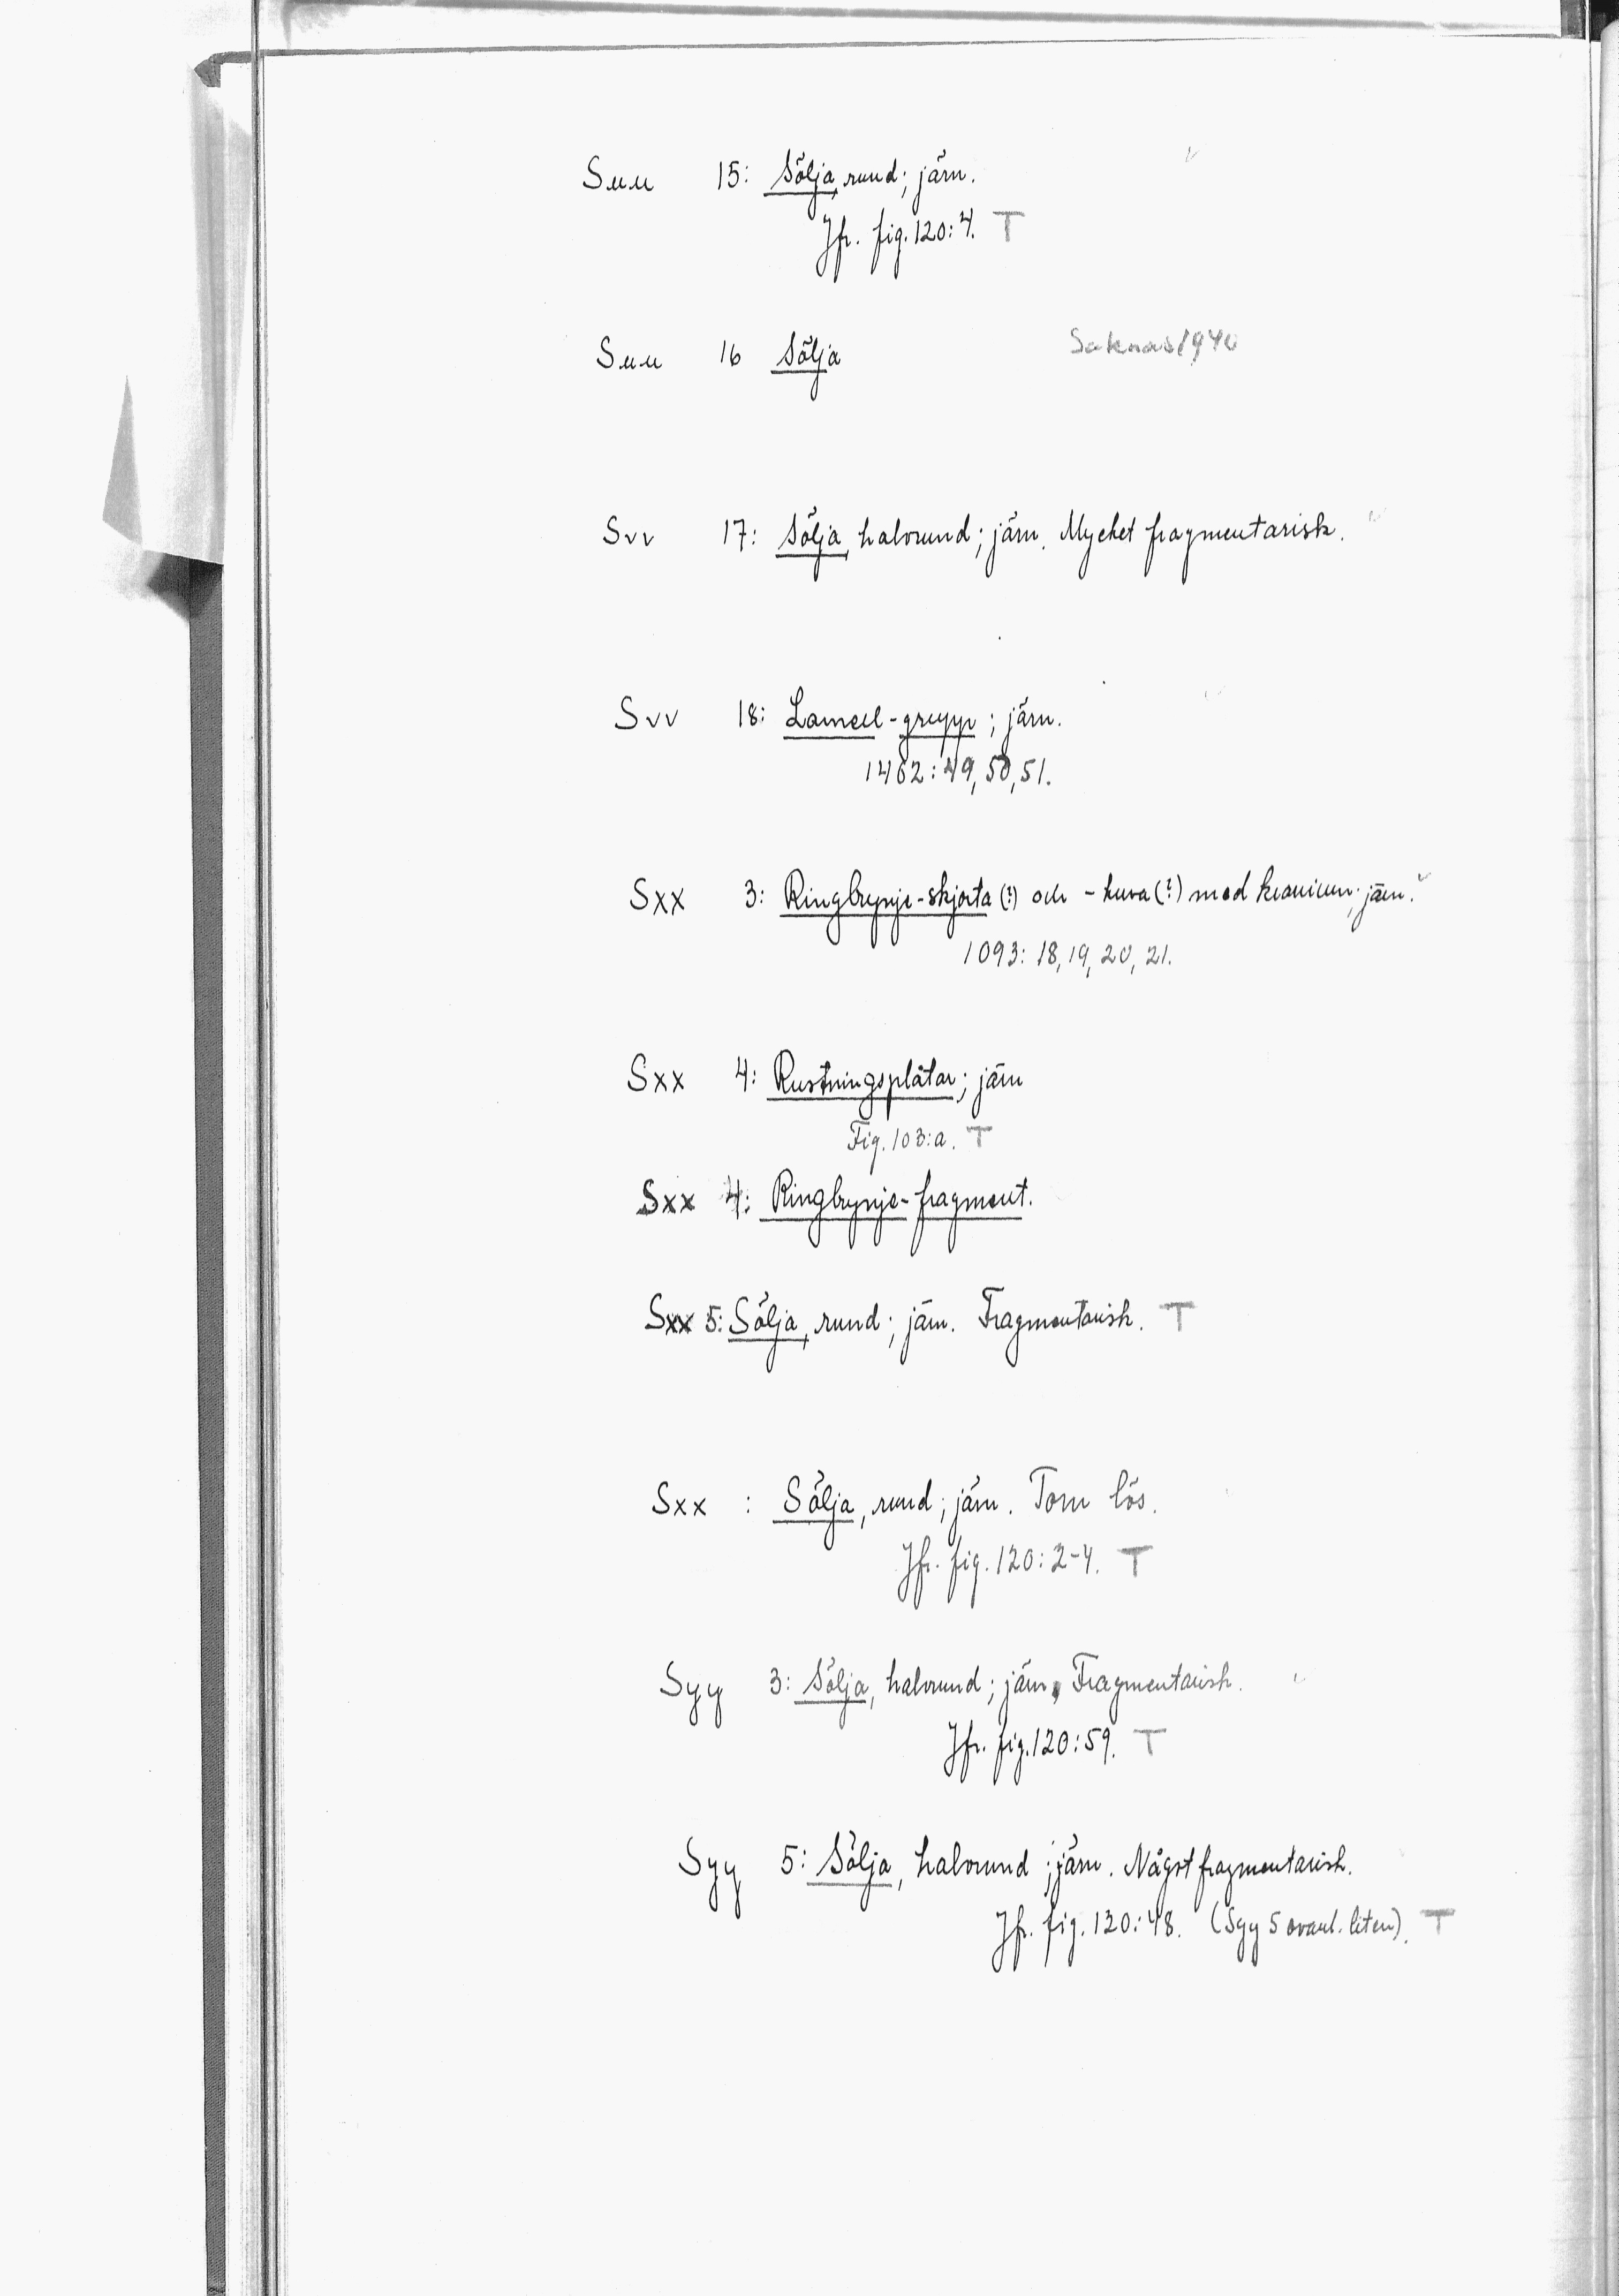 Suu 15: Sölja, rund; järn.
Jfr. fig. 120:4. T
Suu 16 Sölja Saknas 1940
Svv 17: Sölja, halvrund; järn. Mycket fragmentarisk.
Svv 18: Lamell-grupp; järn.
1462:49, 50, 51.
Sxx 3: Ringbrynje-skjorta (?) och -huva (?) med kranium; järn.
1093: 18, 19, 20, 21.
Sxx 4: Rustningsplåtar; järn
Fig. 103:a. T
Sxx 4: Ringbrynje-fragment.
Sxx 5: Sölja, rund; järn. Fragmentarisk. T
Sxx : Sölja, rund; järn. Torn lös.
Jfr. fig. 120:2-4. T
Syy 3: Sölja, halvrund; järn, Fragmentarisk.
Jfr. fig. 120:59. T
Syy 5: Sölja, halvrund; järn. Något fragmentarisk.
Jfr. fig. 120:48. (Syy 5 ovanl. liten). T